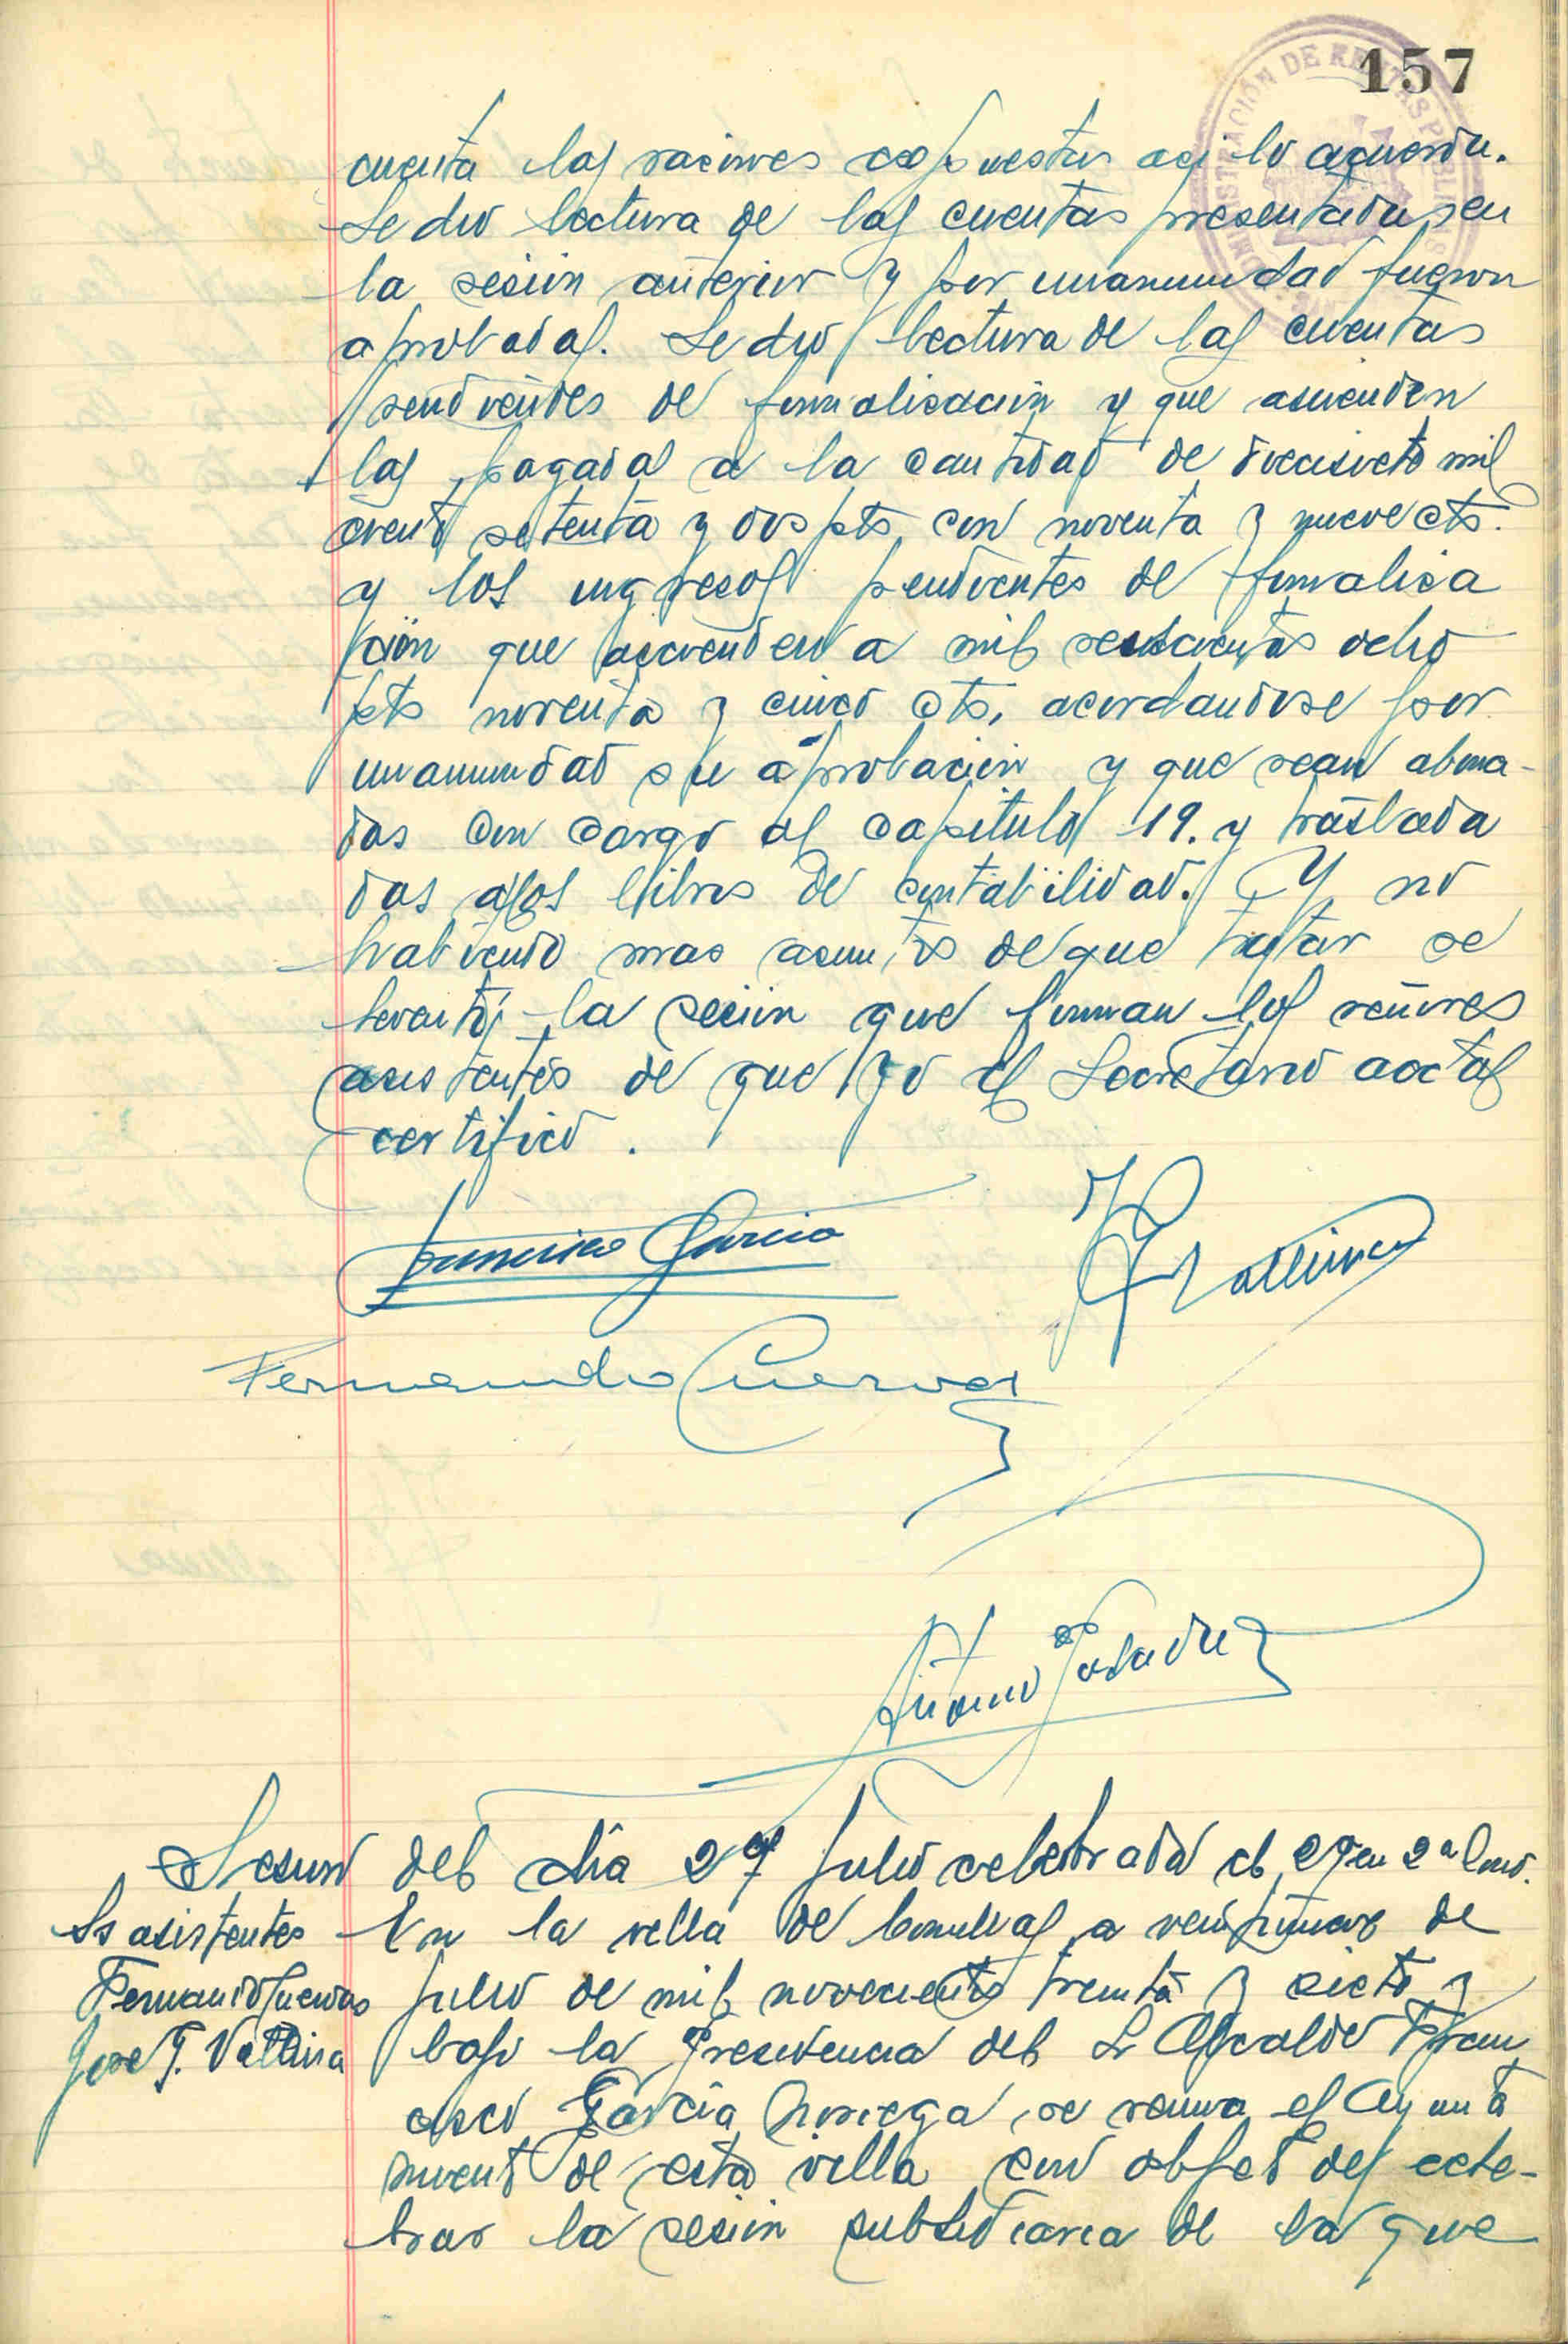 157
ADMINISTRACIÓN DE RENTAS PUBLICAS
cuenta las raciones expuestas asi lo acuerda.
Se dio lectura de las cuentas presentadas en
la sesion anterior y por unanimidad fueron
aprobadas. Se dio lectura de las cuentas
pendientes de formalisacion y que ascienden
las pagadas a la cantidad de diecisiete mil
ciento setenta y dos pts con noventa y nueve cts.
y los ingresos pendientes de formalisa
cion que ascienden a mil seiscientas ocho
pts noventa y cinco cts, acordandose por
unanimidad su aprobacion y que sean abona-
das con cargo al capitulo 19. y traslada
das a los libros de contabilidad. Y no
habiendo mas asuntos de que tratar se
levantó la sesion que firman los señores
asistentes de que yo el Secretario acctal
certifico.
Francisco Garcia
J G Vallina
Fernando Cuervas
Antonio
Sesion del dia 27 Julio celebrada el 29 en 2ª Conv.
Ss asistentes
Fernando Cuervas
Jose G. Vallina
En la villa de a veintinueve de
Julio de mil novecientos treinta y siete y
bajo la Presidencia del Sr Alcalde Fran
cisco García Noriega se reunio el Ayunta
miento de esta villa con objeto del cele-
brar la sesion subsidiaria de la que